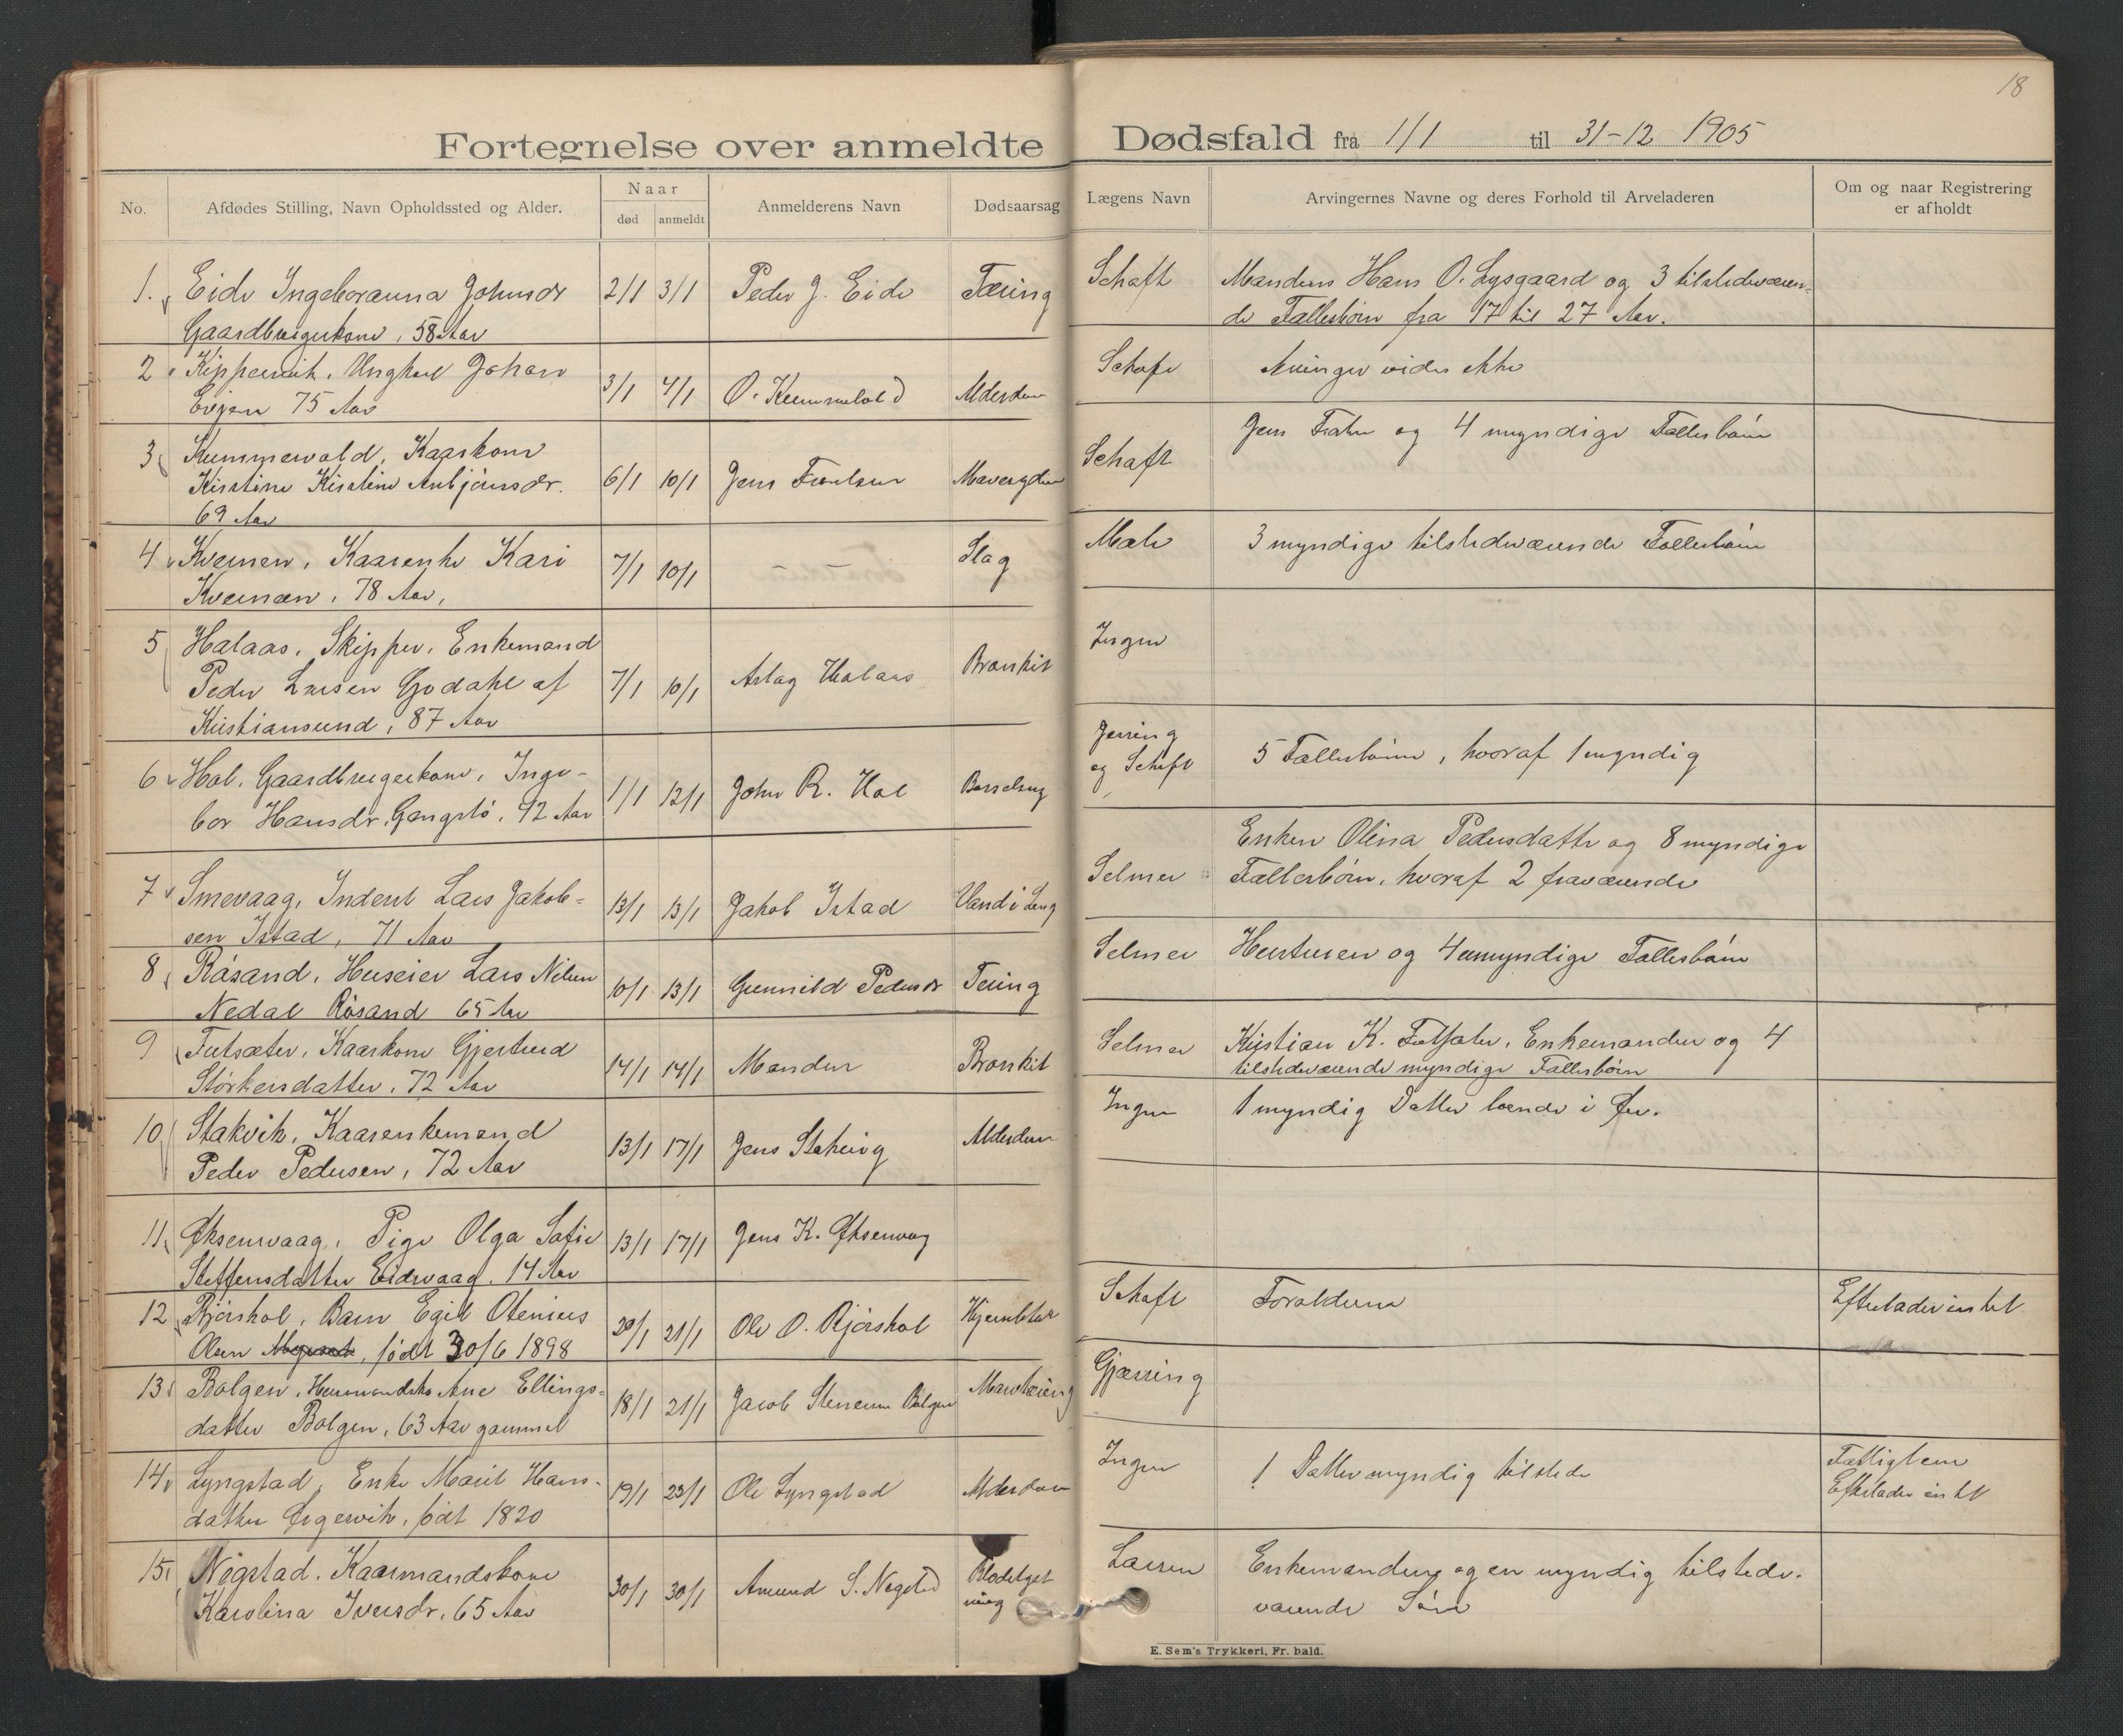 18
Fortegnelse over anmeldte Dødsfald fra 1/1 til 31-12 1905
No.
Afdødes Stilling, Navn Opholdssted og Alder.
Naar
død
anmeldt
Anmelderens Navn
Dødsaarsag
Lægens Navn
Arvingernes Navne og deres Forhold til Arveladeren
Om og naar Registrering
er afholdt
1. Eide Johnsdr 2/1 3/1 Peder J. Eide Tæring
Gaardbrugerkone, 58 Aar
2 Ungkarl Johan
75 Aar 3/1 4/1 O. Alderdom
3 Kummervold, Kaarkone
Kirstine Kirstine
69 Aar 6/1 10/1 Jens
4 Kvernen, Kaarenke Kari 7/1 10/1 Slag
Kvernen, 78 Aar,
5 Halaas, Skipper, Enkemand
Peder Larsen Godahl af 7/1 10/1 Aslag Halaas Bronkit
Kristiansund, 87 Aar
6 Hol, Gaardbrugerkone, Inge-
bor Hansdr. Gangstø, 42 Aar 1/1 12/1 John R. Hol Barselseng
7 Smevaag, Inderst Lars Jakob-
sen Istad, 71 Aar 13/1 13/1 Jakob Istad Vand i Lung
8 Røsand, Huseier Lars Nilsen
Nedal Røsand 65 Aar 10/1 13/1 Gunnild Pedersdr Tæring
9 Futsæter, Kaarkone Gjertrud
Størkersdatter, 72 Aar 14/1 14/1 Manden Bronkit
10 Stakvik, Kaarenkemand
Peder Pedersen, 72 Aar 13/1 17/1 Jens Alderdom
11 Øksenvaag, Pige Olga Sofie 13/1 17/1 Jens K. Øksenvag
Steffensdatter Eidsvaag, 14 Aar
12 Barn Egil Otenius
Olsen født 30/6 1898 20/1 21/1 Ole O.
13 Bolgen, Ane Ellings-
datter Bolgen, 63 Aar gammel 18/1 21/1 Jacob Bolgen
14 Lyngstad, Enke Marit Hans-
datter Ørgervik, født 1820 19/1 23/1 Ole Lyngstad Alderdom
15 Nøgstad, Kaarmandskone
Karolina Iversdr. 65 Aar 30/1 30/1 Amund S. Nøgstad
Schaft Manden Hans O. Lysgaard og 3 tilstedeværen-
de Fællesbørn fra 17 til 27 Aar.
Schaft Arvinger vides ikke
Schaft Jens og 4 myndige Fællesbørn
3 myndige tilstedeværende Fællesbørn
Ingen
Jerring
og Schaft 5 Fællesbørn, hvoraf 1 myndig
Selmer Enken Olina Pedersdatter og 8 myndige
Fællesbørn, hvoraf 2 fraværende
Selmer Hustruen og 4 umyndige Fællesbørn
Selmer Kristian K. Futsæter, Enkemanden og 4
tilstedeværende myndige Fællesbørn
Ingen 1 myndig Datter boende i
Schaft Forældrene Efterlader intet
Gjærring
Ingen 1 Datter myndig tilstede Fattiglem
Efterlader intet
Larsen Enkemanden og en myndig tilstede-
værende Søn
E. Sem's Trykkeri, Fr. hald.